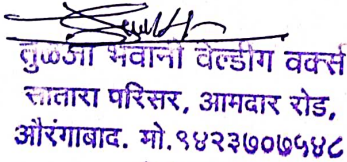 तुळजा भवानी वेल्डींग वर्क्स
सातारा परिसर, आमदार रोड,
औरंगाबाद. मो.९४२३७०७५४८